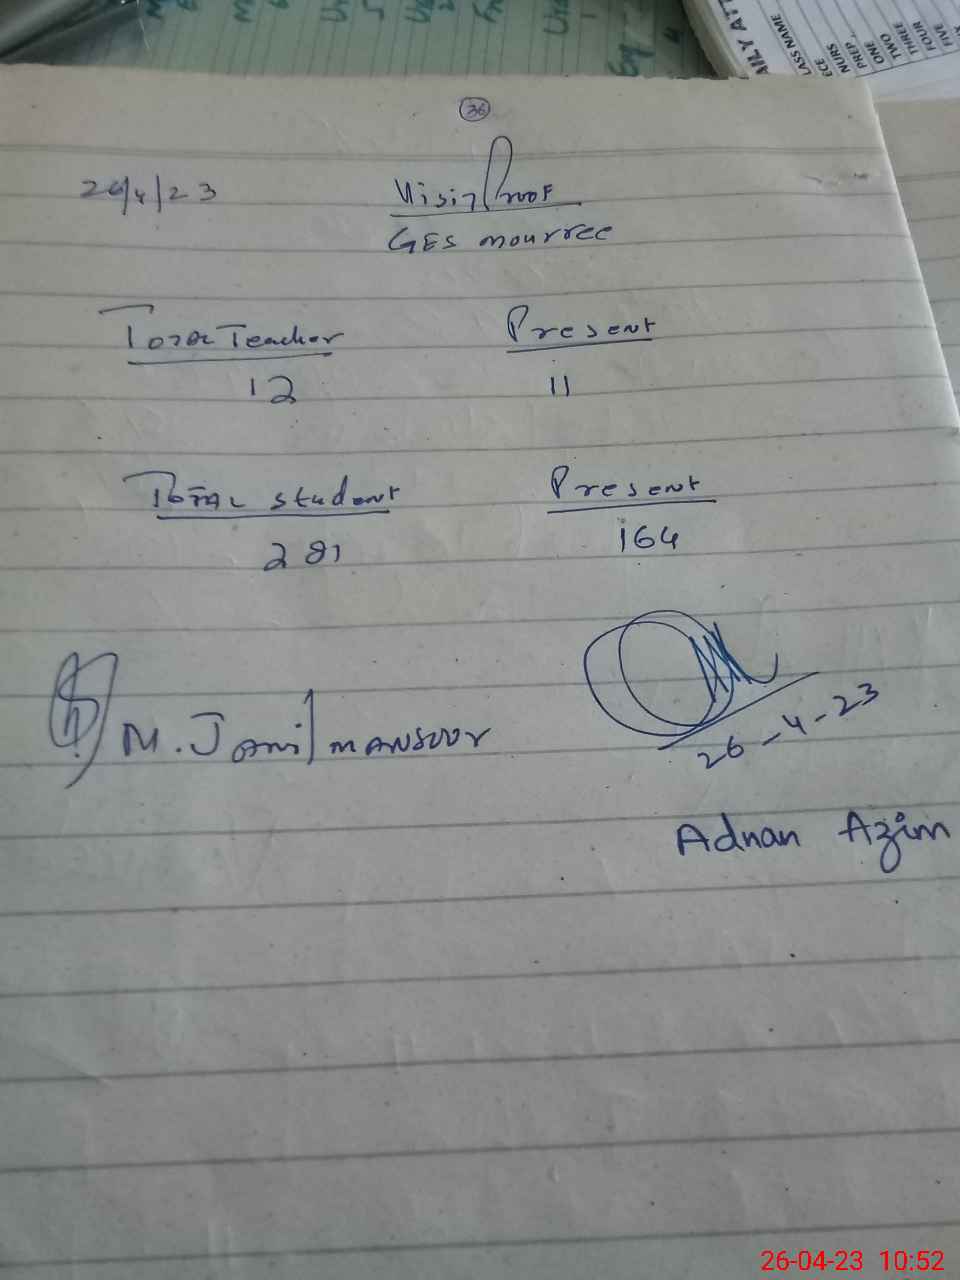 AILY ATT
LASS NAME
ECE
NURS
PREP,
ONE
TWO
THREE
FOUR
FIVE
36
26/4/23
Visit Proof
GES mourree
Total Teacher Present
12 11
Total student Present
281 164
M. Jamil mansoor
26-4-23
Adnan Azim
26-04-23 10:52